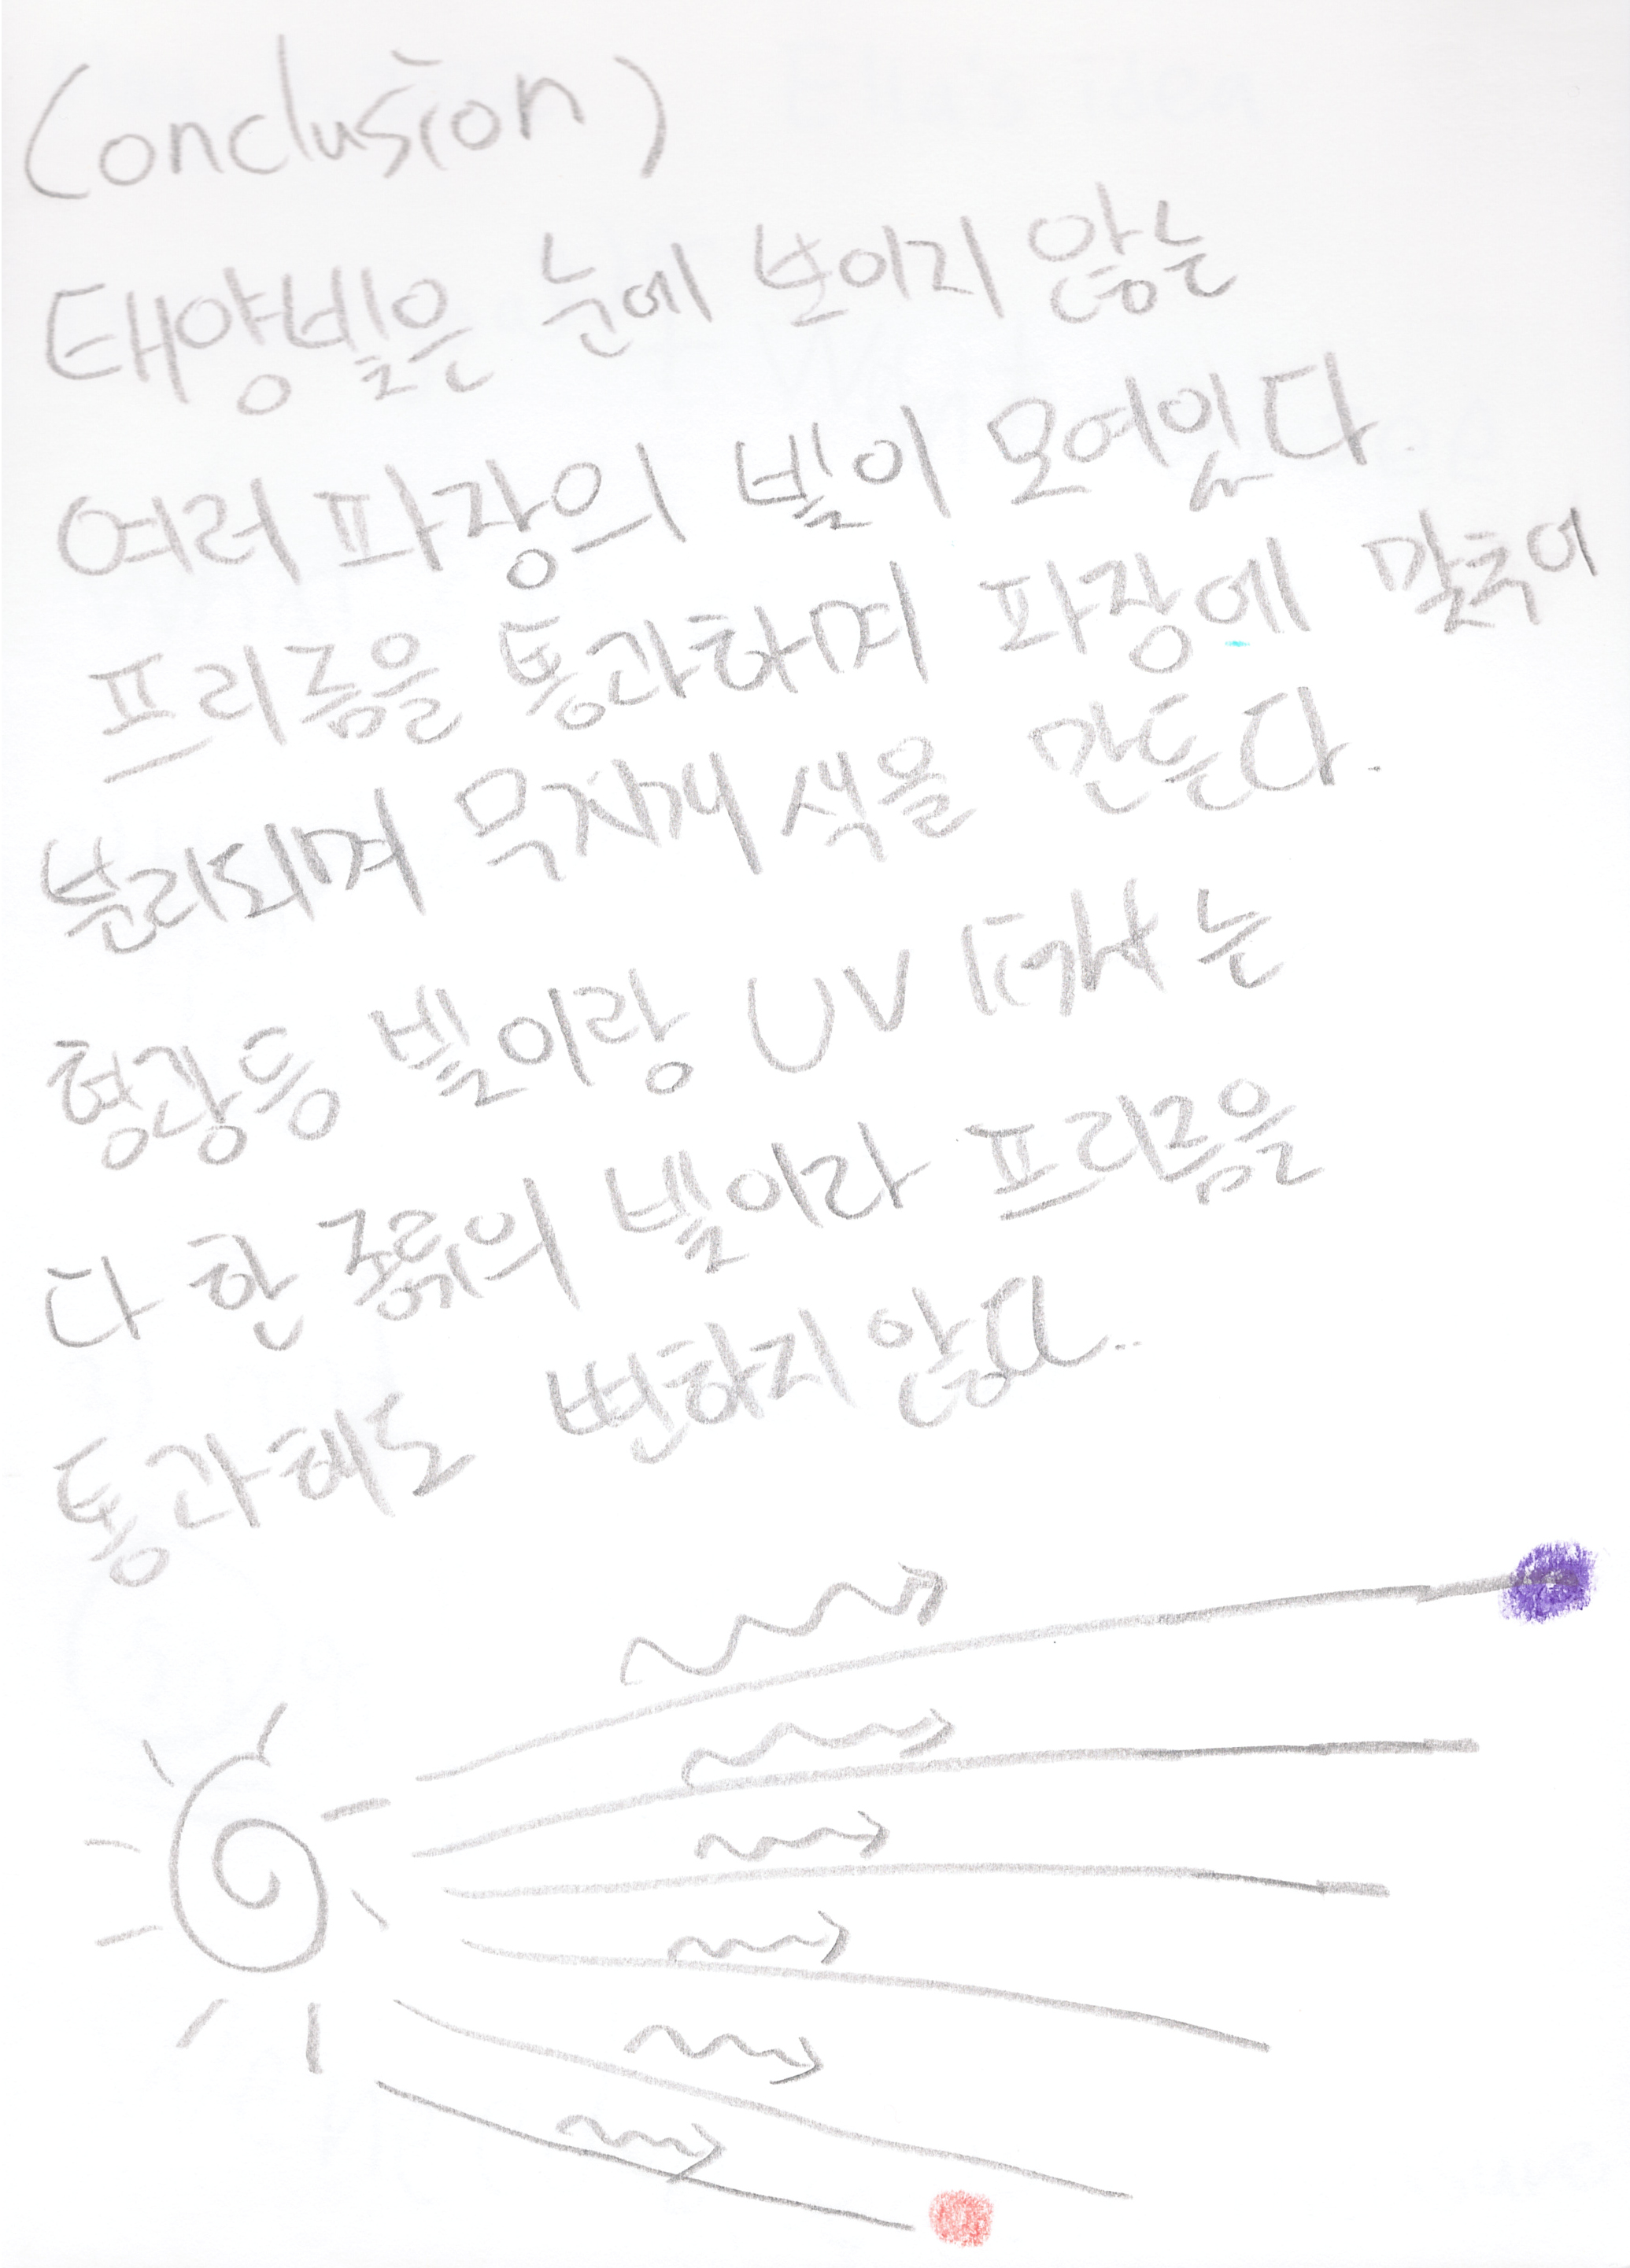 (onclusion)
태양빛은 눈에 보이지 않는
여러 파장의 빛이 모여있다.
프리즘을 통과하며 파장에 맞추어
분리되며 무지개 색을 만든다.
형광등 빛이랑 UV light는
다 한 종류의 빛이라 프리즘을
통과해도 변하지 않는다..